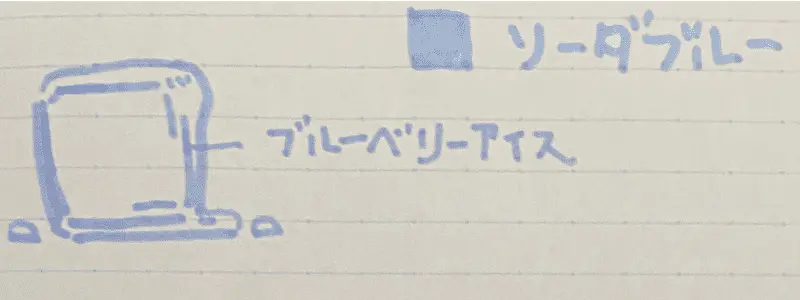 ソーダブルー
ブルーベリーアイス